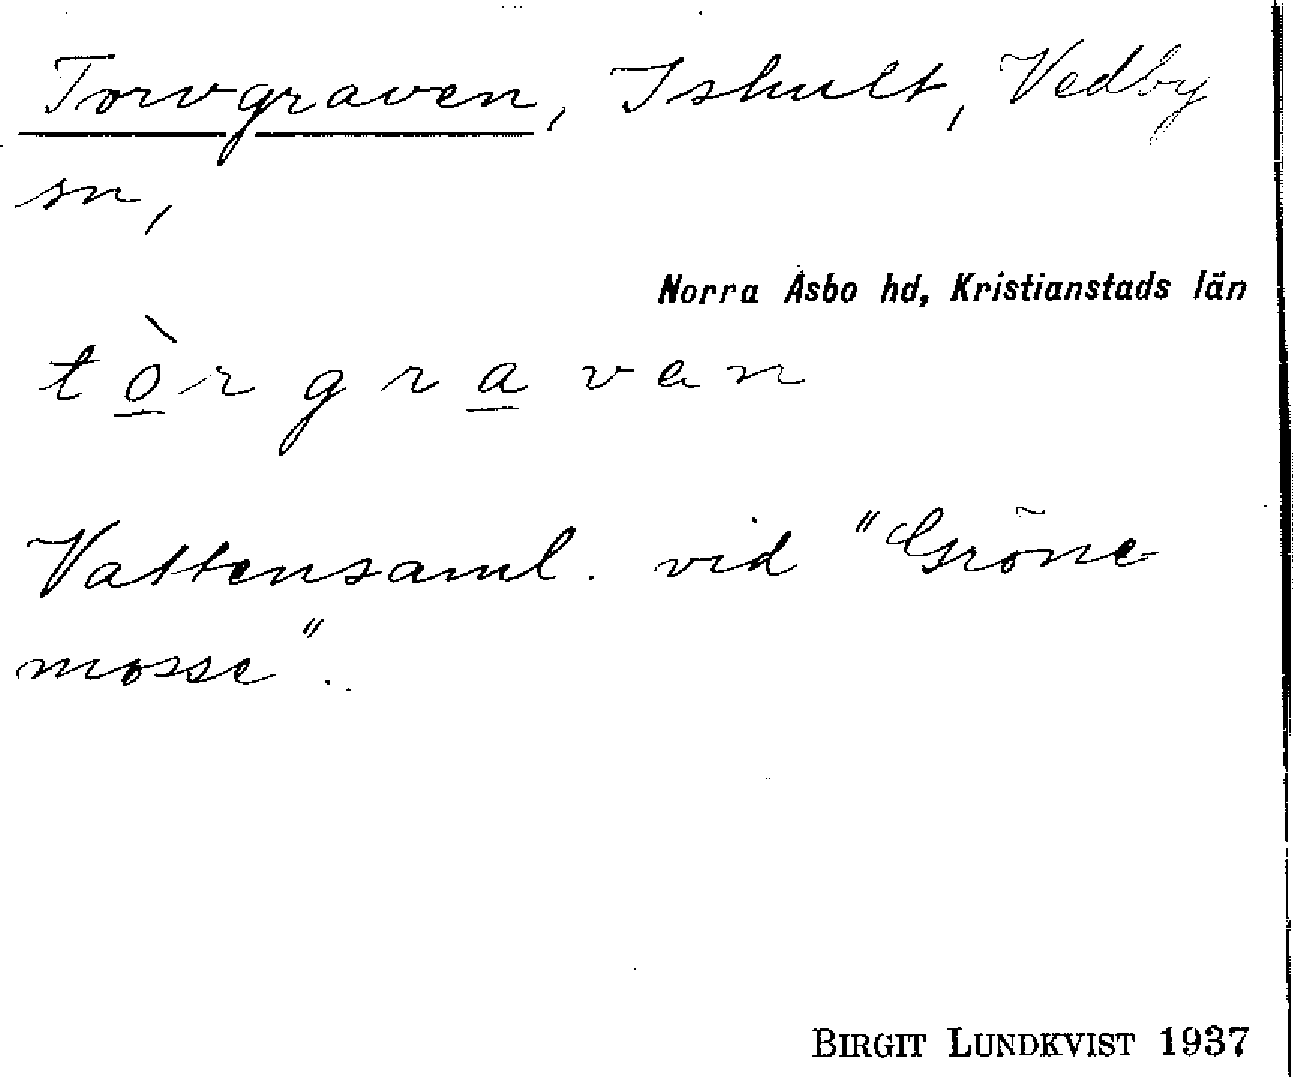 Torvgraven, Ishult, Vedby
sn,
Norra Åsbo hd, Kristianstads län
tòrgravan
Vattensaml. vid "Gröne
mosse".
BIRGIT LUNDKVIST 1937